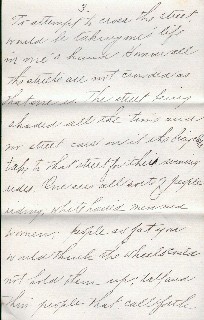 3.
To attempt to cross the street
would be taking one's life
in one's hands. However all
the streets are not crowded as
that one is. The street being
shaded all the time and
no street cars on it the bicycles
take to that street for their evening
rides. One sees all sorts of people
riding, white haired men and
women, people so fat you
would think the wheels could
not hold them up, tall and
thin people that call forth